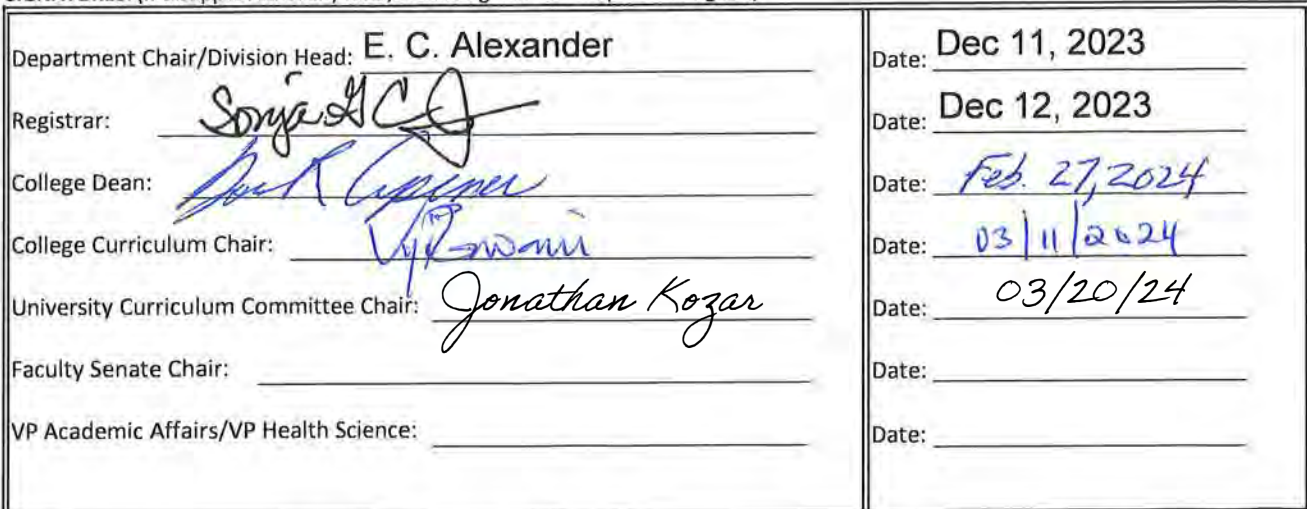 Department Chair/Division Head: E. C. Alexander Date: Dec 11, 2023
Registrar: Sonja G C Date: Dec 12, 2023
College Dean: Date: Feb. 27, 2024
College Curriculum Chair: Date: 03/11/2024
University Curriculum Committee Chair: Jonathan Kozar Date: 03/20/24
Faculty Senate Chair: Date:
VP Academic Affairs/VP Health Science: Date: